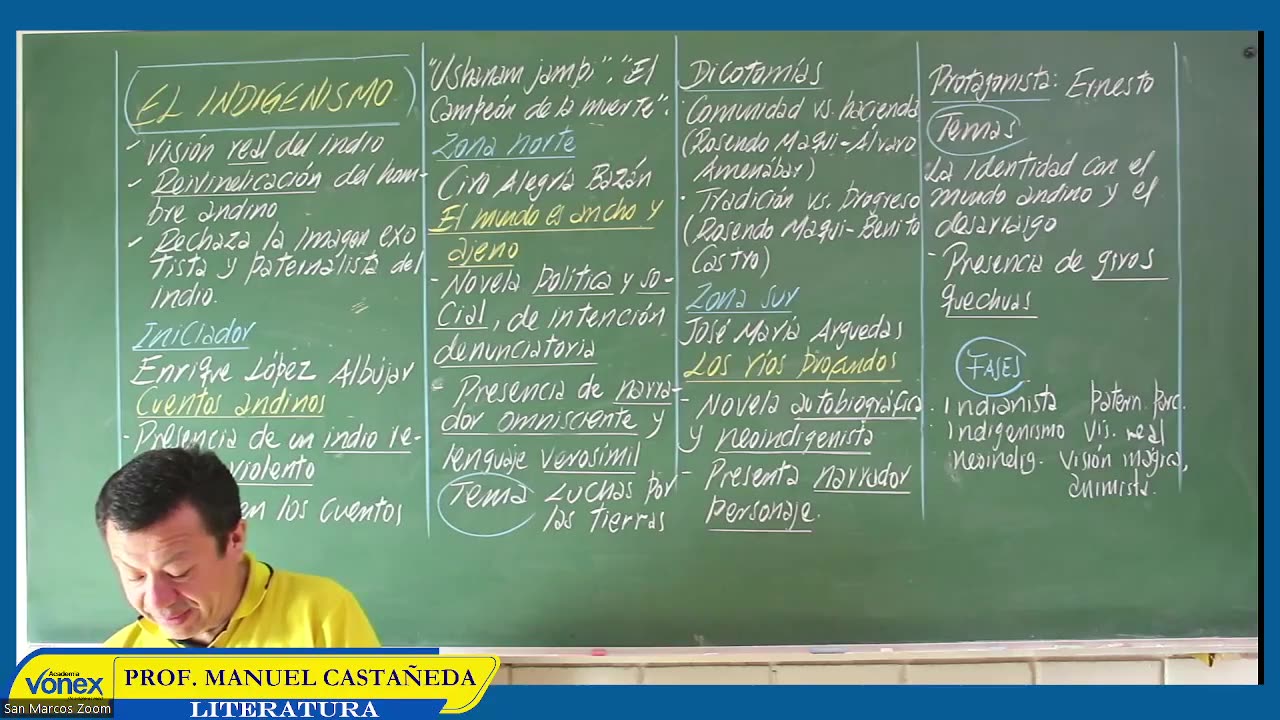 EL INDIGENISMO
✓ Visión real del indio
✓ Reivindicación del hom-
bre andino
✓ Rechaza la imagen exo
tista y paternalista del
indio.
Iniciador
Enrique López Albújar
Cuentos andinos
- Presencia de un indio re-
violento
en los cuentos
"Ushanam jampi", "El
Campeón de la muerte".
Zona norte
Ciro Alegría Bazán
El mundo es ancho y
ajeno
- Novela política y so-
cial, de intención
denunciatoria
- Presencia de narra-
dor omnisciente y
lenguaje verosímil
Tema Luchas por
las tierras
Dicotomías
· Comunidad vs. hacienda
(Rosendo Maqui - Álvaro
Amenábar)
· Tradición vs. progreso
(Rosendo Maqui - Benito
Castro)
Zona sur
José María Arguedas
Los ríos profundos
- Novela autobiográfica
y neoindigenista
- Presenta narrador
personaje.
Protagonista: Ernesto
Temas
La identidad con el
mundo andino y el
desarraigo
- Presencia de giros
quechuas
FASES
· Indianista Patern. Parc.
· Indigenismo Vis. real
· Neoindig. Visión mágica,
animista.
Academia
vonex
PROF. MANUEL CASTAÑEDA
LITERATURA
San Marcos Zoom